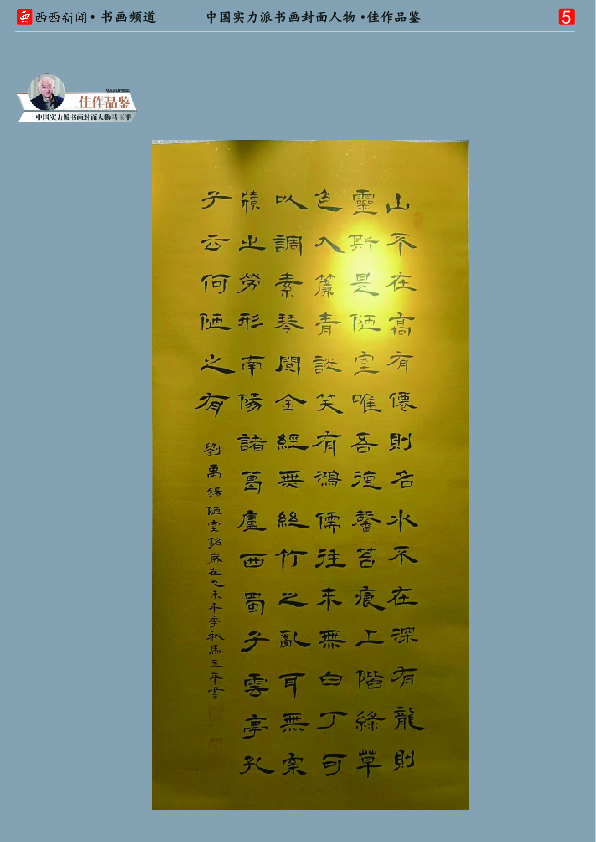 西西新闻·书画频道
中国实力派书画封面人物·佳作品鉴
5
佳作品鉴
中国实力派书画封面人物马玉亭
山不在高有僊則名水不在深有龍則
靈斯是陋室唯吾德馨苔痕上階綠草
色入簾青談笑有鴻儒往来無白丁可
以調素琴閱金經無絲竹之亂耳無案
牘之勞形南陽諸葛廬西蜀子雲亭孔
子云何陋之有
劉禹錫陋室銘歲在乙未年季秋馬玉亭書